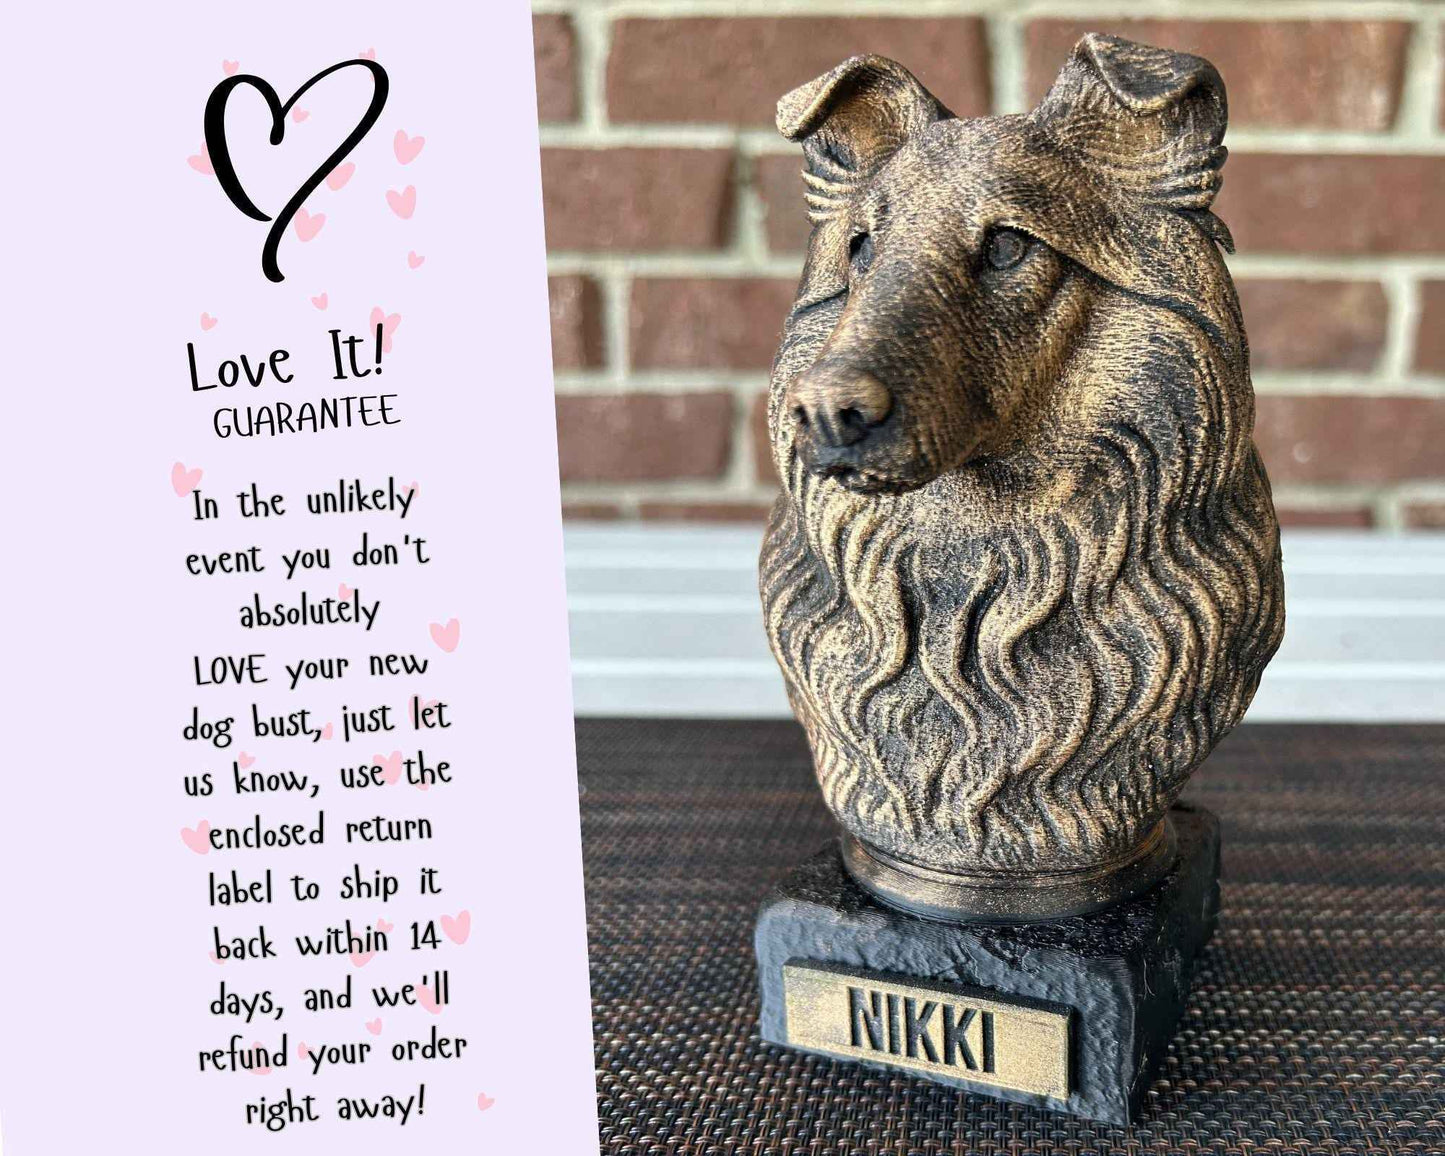 Love It!
GUARANTEE
In the unlikely
event you don't
absolutely
LOVE your new
dog bust, just let
us know, use the
enclosed return
label to ship it
back within 14
days, and we'll
refund your order
right away!
NIKKI